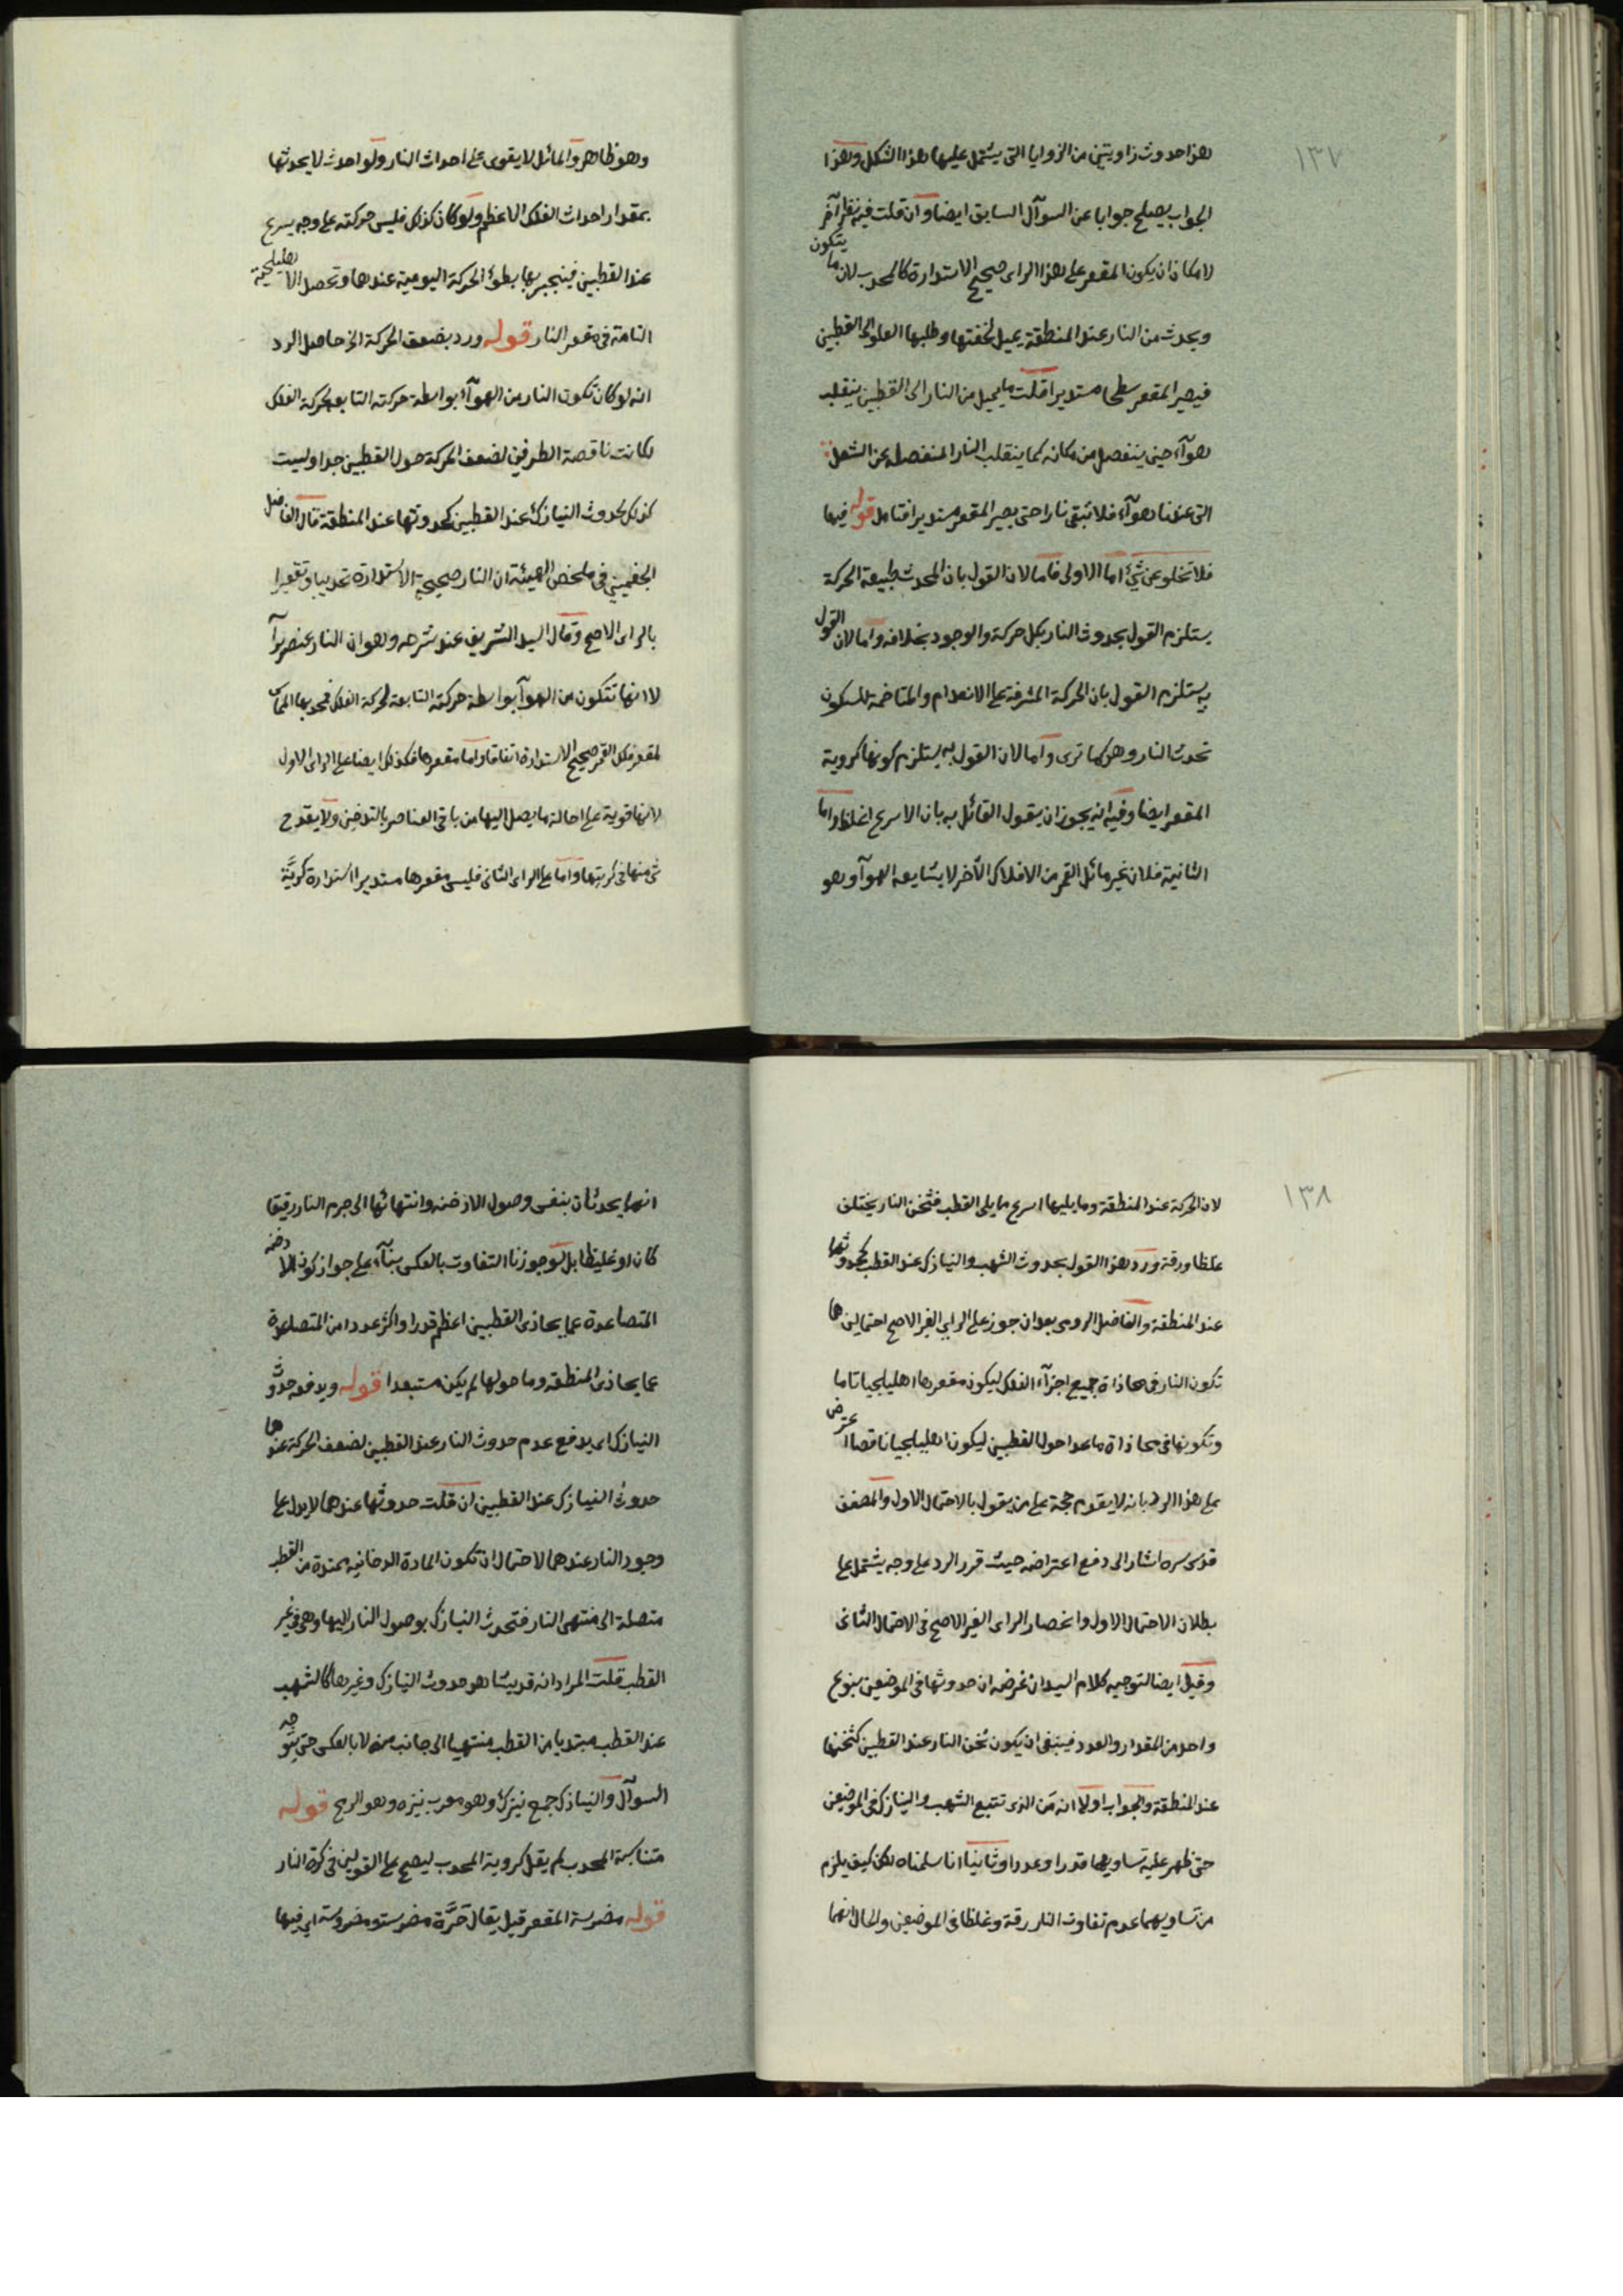 ١٣٧
هذا حدوث زاويتين من الزوايا التى يشتمل عليها هذا الشكل وهذا
الجواب يصلح جوابا عن السوآل السابق ايضا وان قلت فيه نظر آخر
لامكان ان يكون المقعر على هذا الراى صحيح الاستدارة كالمحدب لان ما يتكون
ويحدث من النار عند المنطقة يميل لخفتها وطلبها العلو الى القطبين
فيصير المقعر سطحا مستديرا قلت ما يميل من النار الى القطبين ينقلب
هوآء حين ينفصل من مكانه كما ينقلب النار المنفصلة عن الشعل
التى عندنا هوآء فلا تبقى نارا حتى يصير المقعر مستديرا فتامل قوله فيها
فلا تخلو عن شئ اما الاولى فاما لان القول بان المحدث طبيعة الحركة
يستلزم القول بحدوث النار بكل حركة والوجود بخلافه واما لان القول
به يستلزم القول بان الحركة المشرفة على الانعدام والمتاخمة للسكون
تحدث النار وهو كما ترى واما لان القول به يستلزم كونها كروية
المقعر ايضا وفيه انه يجوز ان يقول القائل به بان الاسرع اغلظ واما
الثانية فلان غير مائل القمر من الافلاك الأخر لا يشايعه الهوآء وهو
وهو ظاهر والمائل لا يقوى على احداث النار ولو احدث لا يحدثها
بمقدار احداث الفلك الاعظم ولو كان كذلك فليس حركته على وجه يسرع
عند القطبين فينجبر بها بطوء الحركة اليومية عندها وتحصل الاهليلجية
التامة فى مقعر النار قوله ورد بضعف الحركة الخ حاصل الرد
انه لو كان تكون النار من الهوآء بواسطة حركته التابعة لحركة الفلك
لكانت ناقصة الطرفين لضعف الحركة حول القطبين جدا وليست
كذلك لحدوث النيازك عند القطبين كحدوثها عند المنطقة قال الفاضل
الجغمينى فى ملخص الهيئة ان النار صحيحة الاستدارة تحديبا وتقعيرا
بالراى الاصح وقال السيد الشريف عند شرحه وهو ان النار عنصر برأسه
لا انها تتكون من الهوآء بواسطة حركته التابعة لحركة الفلك فمحدبها المماس
لمقعر فلك القمر صحيح الاستدارة اتفاقا واما مقعرها فكذلك ايضا على الراى الاول
لانها قوية على احالة ما يصل اليها من باقى العناصر بالتدخين ولا يقدح
شئ منها فى كريتها واما على الراى الثانى فليس مقعرها مستديرا استدارة كريّة
١٣٨
لان الحركة عند المنطقة وما يليها اسرع مما يلى القطب فثخن النار يختلف
غلظا ورقة ورد هذا القول بحدوث الشهب والنيازك عند القطب كحدوثها
عند المنطقة والفاضل الرومى بعد ان جوز على الراى الغير الاصح احتمالين هما
تكون النار فى محاذاة جميع اجزآء الفلك ليكون مقعرها اهليلجيا تاما
وتكونها فى محاذاة ما عدا حول القطبين ليكون اهليلجيا ناقصا اعترض
على هذا الرد بانه لا يقوم حجة على من يقول بالاحتمال الاول والمصنف
قدس سره اشار الى دفع اعتراضه حيث قرر الرد على وجه يشتمل على
بطلان الاحتمال الاول وانحصار الراى الغير الاصح فى الاحتمال الثانى
وقيل ايضا لتوجيه كلام السيد ان غرضه ان حدوثها فى الموضعين بنوع
واحد من المقدار والعدد فينبغى ان يكون ثخن النار عند القطبين كثخنها
عند المنطقة والجواب اولا انه من الذى تتبع الشهب والنيازك فى الموضعين
حتى ظهر عليه تساويهما قدرا وعددا وثانيا انا سلمناه لكن كيف يلزم
من تساويهما عدم تفاوت النار رقة وغلظا فى الموضعين والحال انهما
انهما يحدثان بنفس وصول الادخنة وانتهائها الى جرم النار رقيقا
كان او غليظا بل لو جوزنا التفاوت بالعكس بنآء على جواز كون الادخنة
المتصاعدة عما يحاذى القطبين اعظم قدرا واكثر عددا من المتصاعدة
عما يحاذى المنطقة وما حولها لم يكن مستبعدا قوله ويدفعه حدوث
النيازك اى يدفع عدم حدوث النار عند القطبين لضعف الحركة عندها
حدوث النيازك عند القطبين ان قلت حدوثها عندهما لا يدل على
وجود النار عندهما لاحتمال ان تكون المادة الدخانية ممتدة من القطب
متصلة الى منتهى النار فتحدث النيازك بوصول النار اليها وهى فى غير
القطب قلت المراد انه قد يشاهد حدوث النيازك وغيرها كالشهب
عند القطب مبتديا من القطب منتهيا الى جانب منه لا بالعكس حتى يتوجه
السوآل والنيازك جمع نيزك وهو معرب نيزه وهو الرمح قوله
متناسبة المحدب لم يقل كروية المحدب ليصح على القولين فى كرة النار
قوله مضرسة المقعر قيل يقال حَرَّة مضرسة ومضروسة اى فيها